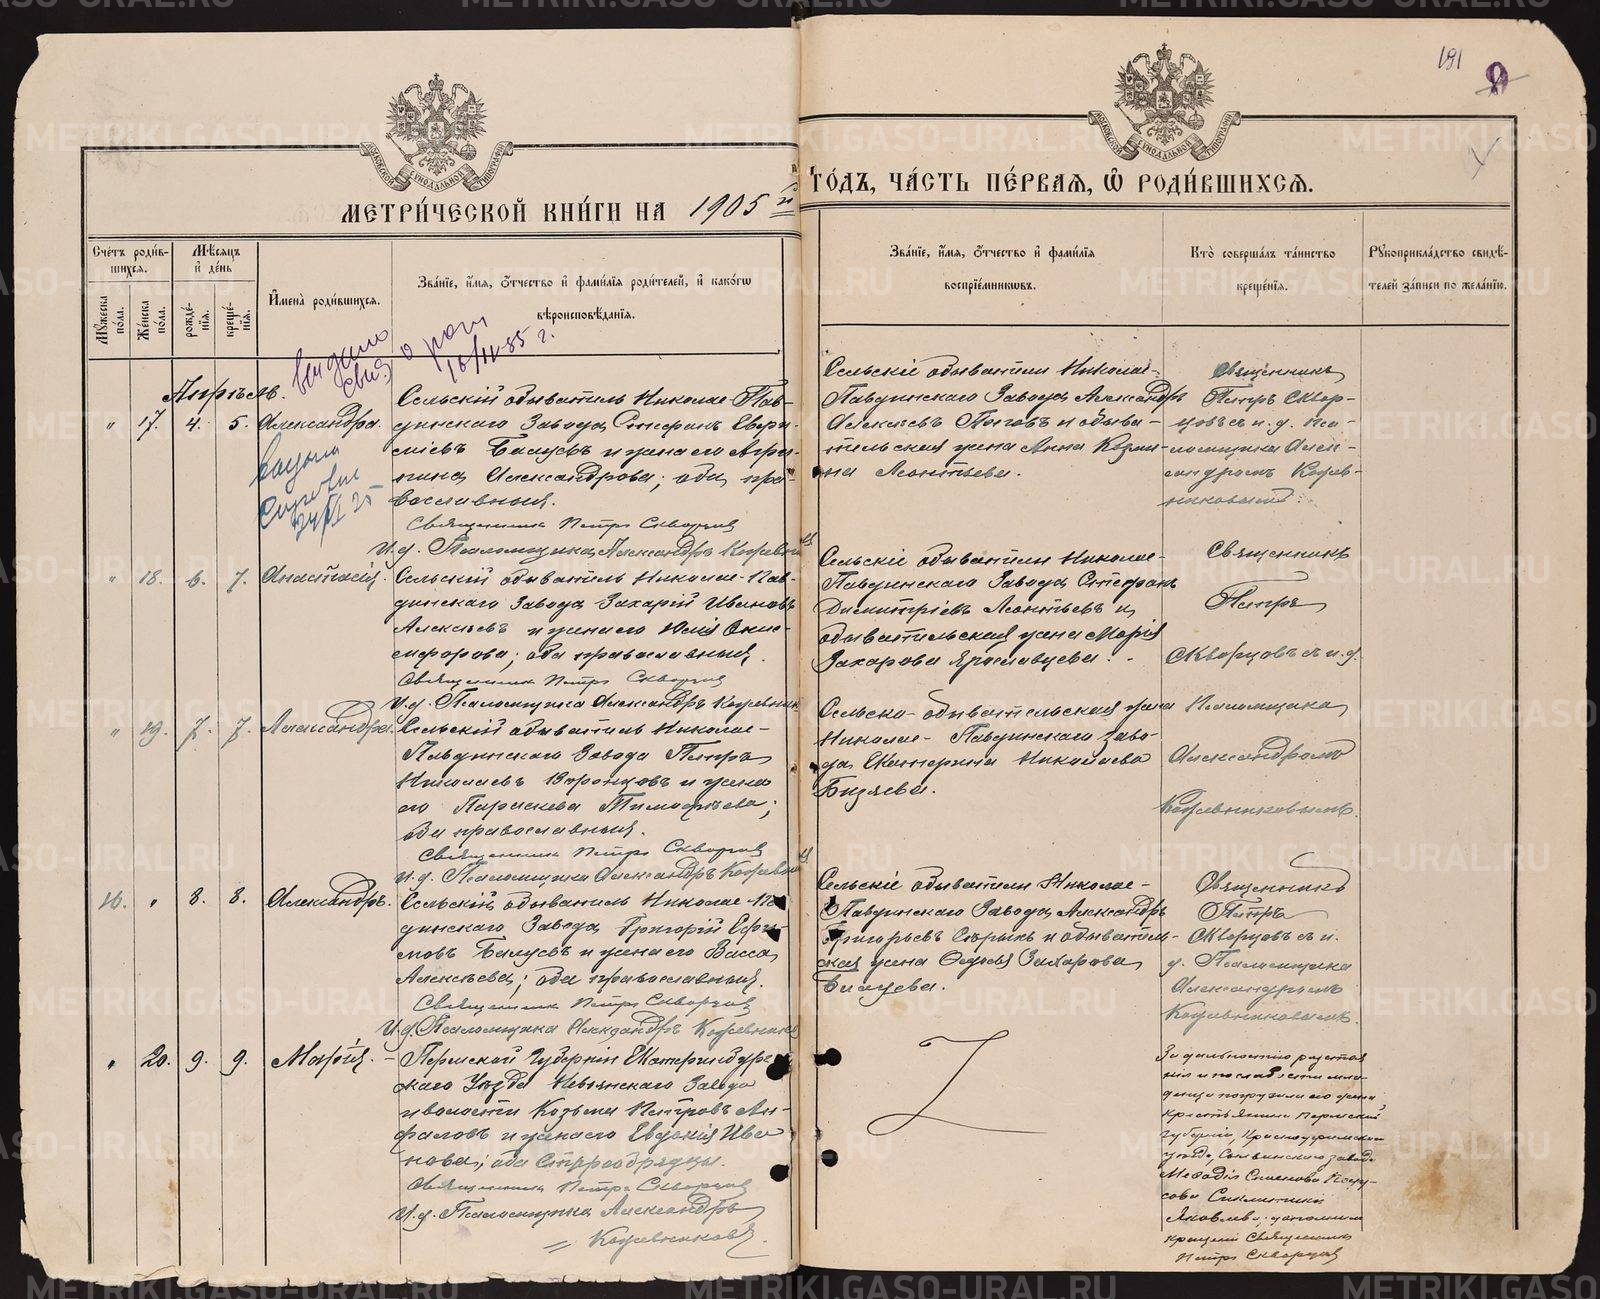 181
МЕТРИ́ЧЕСКОЙ КНИ́ГИ НА 1905 й
ГО́ДЪ, ЧА́СТЬ ПЕ́РВАЯ, Ѽ РОДИ́ВШИХСЯ.
МОСКОВСКОЙ СѴНОДАЛЬНОЙ ТИПОГРАФІИ
МОСКОВСКОЙ СѴНОДАЛЬНОЙ ТИПОГРАФІИ
Сче́тъ роди́в-
шихся.
Мꙋ́жеска по́ла.
Же́нска по́ла.
Мѣ́сяцъ
и҆ де́нь
рожде́-
нїѧ.
креще́-
нїѧ.
И҆мена̀ роди́вшихся.
Зва́нїе, и҆́мя, ѻ҆́тчество и҆ фами́лїѧ роди́телей, и҆ како́гѡ
вѣроисповѣ́данїѧ.
Зва́нїе, и҆́мя, ѻ҆́тчество и҆ фами́лїѧ
воспрїе́мникѡвъ.
Кто̀ соверша́лъ та́инство
креще́нїѧ.
Рꙋкоприкла́дство свидѣ́-
телей за́писи по жела́нїю.
выдано
свид о рож
16/II-85 г.
Апрѣль.
" 17. 4. 5. Александра.
Сельскій обыватель Николае-Пав-
динскаго Завода Стефанъ Евфи-
міевъ Балуевъ и жена его Агри-
пина Александрова; оба пра-
вославныя.
Священникъ Петръ Скворцовъ
И.д. Псаломщика Александръ Кожевников
Сельскіе обыватели Николае-
Павдинскаго Завода Александръ
Алексѣевъ Поповъ и обыва-
тельская жена Анна Козми-
на Леонтьева.
Священникъ
Петръ Сквор-
цовъ съ и.д. Пса-
ломщика Алек-
сандромъ Кожев-
никовымъ.
" 18. 6. 7. Анастасія.
Сельскій обыватель Николае-Пав-
динскаго Завода Захарій Ивановъ
Алексѣевъ и жена его Юлія Ониси-
форова; оба православныя.
Священникъ Петръ Скворцовъ
И.д. Псаломщика Александръ Кожевников
Сельскіе обыватели Николае-
Павдинскаго Завода Стефанъ
Димитріевъ Леонтьевъ и
обывательская жена Марія
Захарова Ярославцева.
Священникъ
Петръ
Скворцовъ съ и.д.
Псаломщика
Александромъ
Кожевниковымъ.
" 19. 7. 7. Александра.
Сельскій обыватель Николае-
Павдинскаго Завода Петръ
Николаевъ Воронцовъ и жена
его Параскева Тимофѣева;
оба православныя.
Священникъ Петръ Скворцовъ
И.д. Псаломщика Александръ Кожевников
Сельско-обывательская жена
Николае-Павдинскаго заво-
да Екатерина Николаева
Бизяева.
16. " 8. 8. Александръ.
Сельскій обыватель Николае-Пав-
динскаго Завода Григорій Ефи-
мовъ Балуевъ и жена его Васса
Алексѣева; оба православныя.
Священникъ Петръ Скворцовъ
И.д. Псаломщика Александръ Кожевников
Сельскіе обыватели Николае-
Павдинскаго Завода Александръ
Григорьевъ Сѣрыхъ и обыватель-
ская жена Захарова
Священникъ
Петръ
Скворцовъ съ и.
д. Псаломщика
Александромъ
Кожевниковымъ.
" 20. 9. 9. Марія.
Пермской Губерніи Екатеринбург-
скаго Уѣзда Невьянскаго Завода
и волости Козьма Петровъ Ан-
фаловъ и жена его Евдокія Ива-
нова; оба старообрядцы.
Священникъ Петръ Скворцовъ
И.д. Псаломщика Александръ
Кожевниковъ.
За дальностію разстоя-
нія и по слабости мла-
денца погрузила его жена
крестьянина Пермской
губерніи, Красноуфимскаго
уѣзда, завода
Меѳодія Семенова
Яковлева; дополнилъ
крещеніе Священникъ
Петръ Скворцовъ